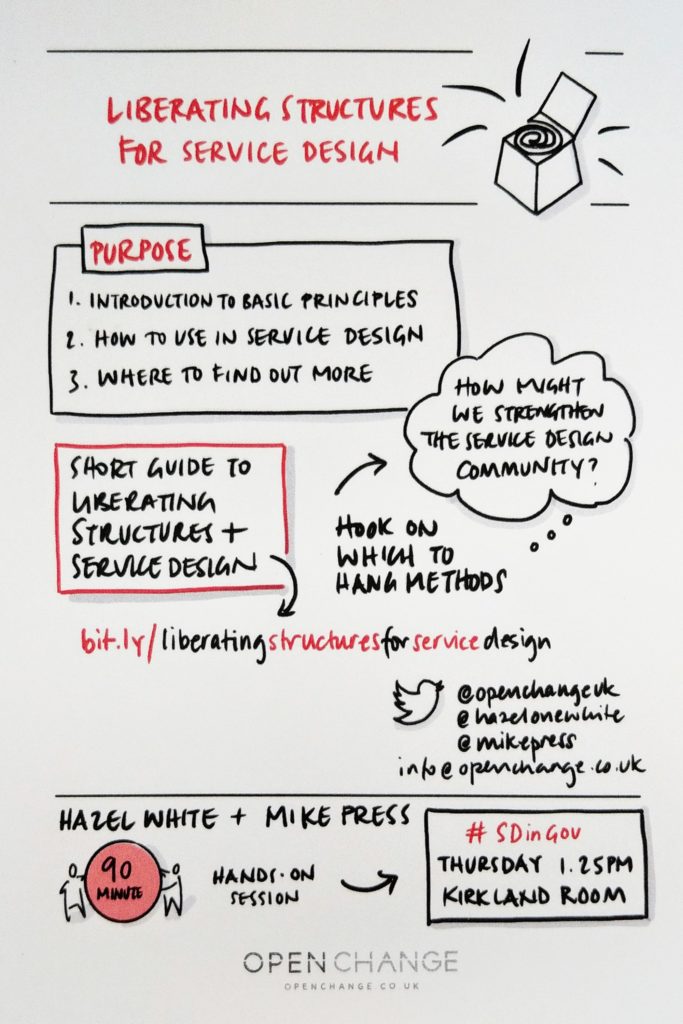 LIBERATING STRUCTURES
FOR SERVICE DESIGN
PURPOSE
1. INTRODUCTION TO BASIC PRINCIPLES
2. HOW TO USE IN SERVICE DESIGN
3. WHERE TO FIND OUT MORE
HOW MIGHT
WE STRENGTHEN
THE SERVICE DESIGN
COMMUNITY?
SHORT GUIDE TO
LIBERATING
STRUCTURES +
SERVICE DESIGN
HOOK ON
WHICH TO
HANG METHODS
bit.ly/liberatingstructuresforservicedesign
@openchangeuk
@hazelonewhite
@mikepress
info@openchange.co.uk
HAZEL WHITE + MIKE PRESS
90
MINUTE
HANDS-ON
SESSION
# SDinGov
THURSDAY 1.25PM
KIRKLAND ROOM
OPEN CHANGE
OPENCHANGE CO UK